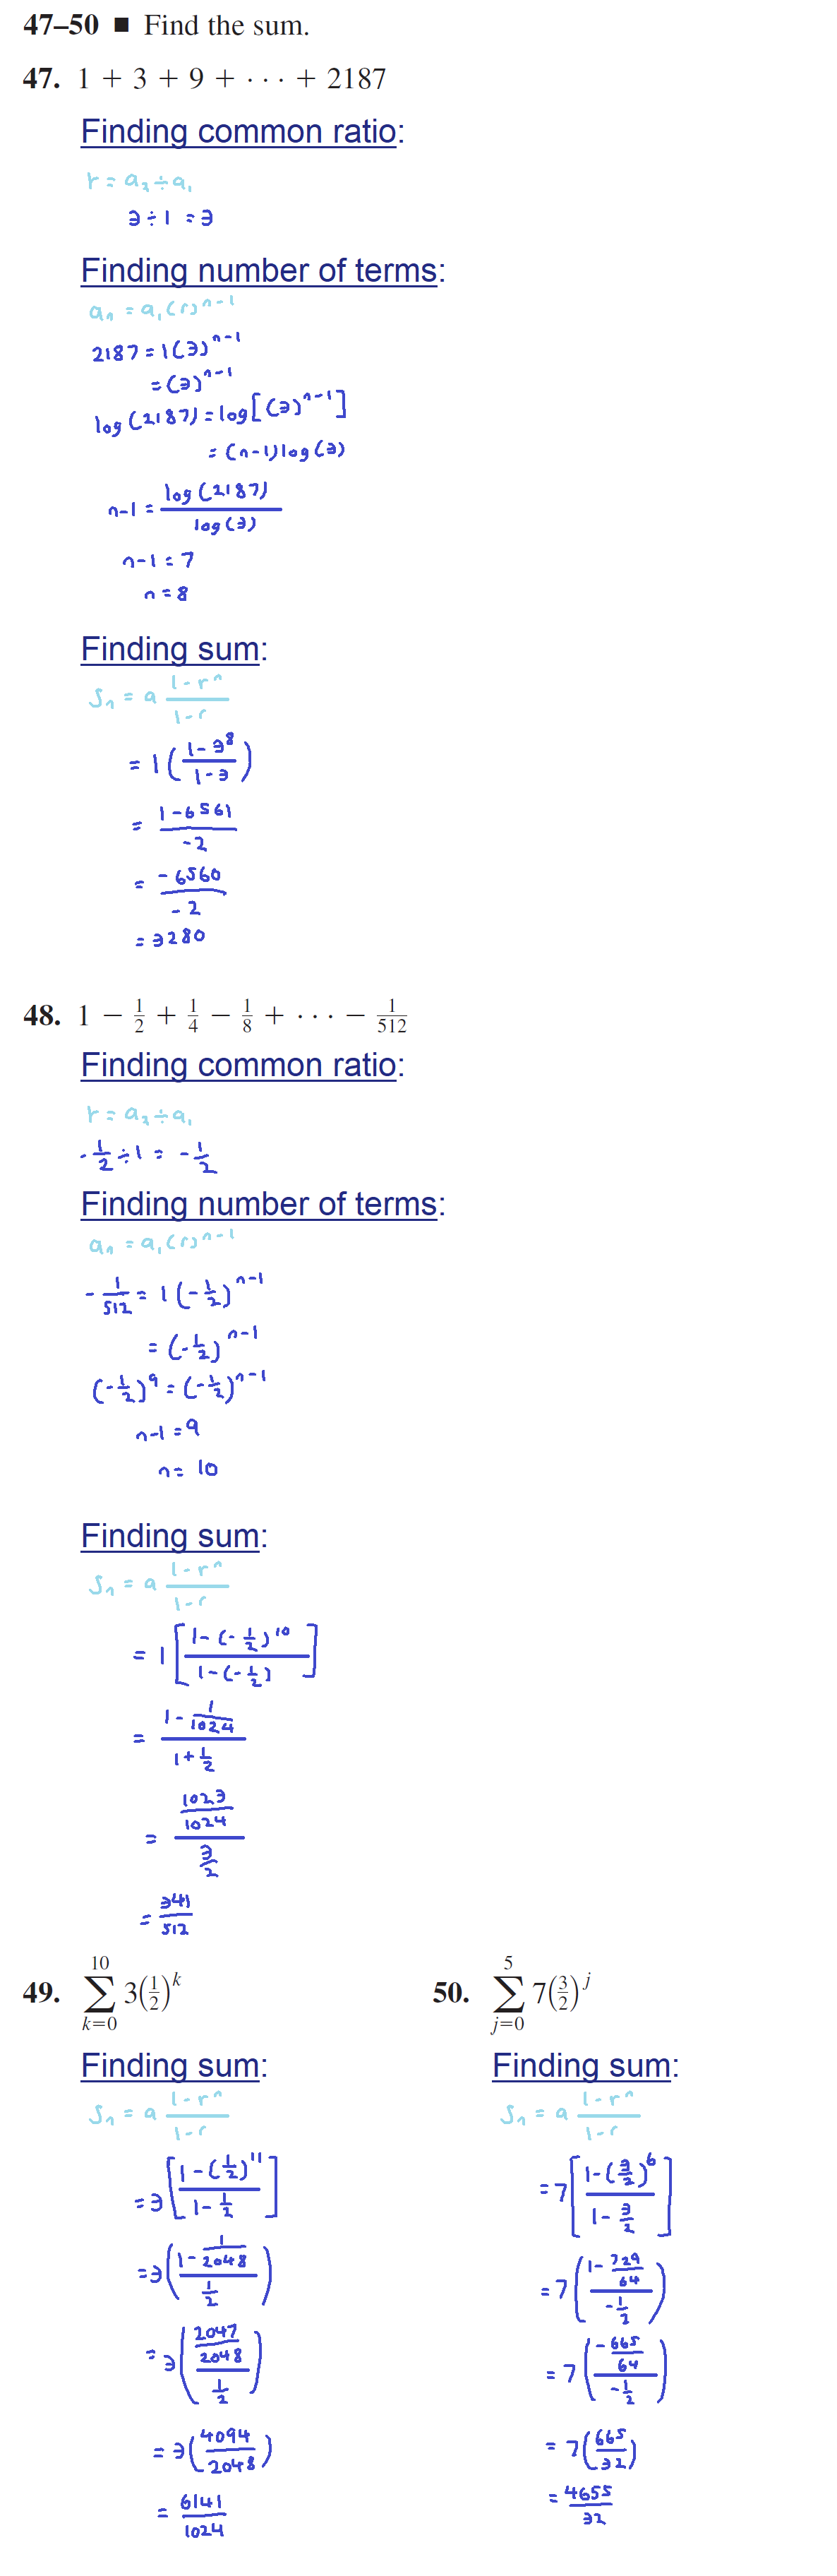 47–50 ■ Find the sum.
47. 1 + 3 + 9 + · · · + 2187
Finding common ratio:
r = a₂ ÷ a₁
3 ÷ 1 = 3
Finding number of terms:
aₙ = a₁(r)ⁿ⁻¹
2187 = 1(3)ⁿ⁻¹
= (3)ⁿ⁻¹
log(2187) = log[(3)ⁿ⁻¹]
= (n-1)log(3)
n-1 = log(2187)/log(3)
n-1 = 7
n = 8
Finding sum:
Sₙ = a (1-rⁿ)/(1-r)
= 1((1-3⁸)/(1-3))
= (1-6561)/(-2)
= -6560/-2
= 3280
48. 1 − 1/2 + 1/4 − 1/8 + · · · − 1/512
Finding common ratio:
r = a₂ ÷ a₁
-1/2 ÷ 1 = -1/2
Finding number of terms:
aₙ = a₁(r)ⁿ⁻¹
-1/512 = 1(-1/2)ⁿ⁻¹
= (-1/2)ⁿ⁻¹
(-1/2)⁹ = (-1/2)ⁿ⁻¹
n-1 = 9
n = 10
Finding sum:
Sₙ = a (1-rⁿ)/(1-r)
= 1[(1-(-1/2)¹⁰)/(1-(-1/2))]
= (1-1/1024)/(1+1/2)
= (1023/1024)/(3/2)
= 341/512
49. ∑ k=0 10 3(1/2)ᵏ
Finding sum:
Sₙ = a (1-rⁿ)/(1-r)
= 3[(1-(1/2)¹¹)/(1-1/2)]
= 3((1-1/2048)/(1/2))
= 3((2047/2048)/(1/2))
= 3(4094/2048)
= 6141/1024
50. ∑ j=0 5 7(3/2)ʲ
Finding sum:
Sₙ = a (1-rⁿ)/(1-r)
= 7[(1-(3/2)⁶)/(1-3/2)]
= 7((1-729/64)/(-1/2))
= 7((-665/64)/(-1/2))
= 7(665/32)
= 4655/32